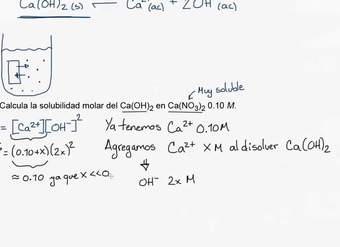 Ca(OH)₂ (s) ⟵ Ca (ac) + 2OH (ac)
Muy soluble
Calcula la solubilidad molar del Ca(OH)₂ en Ca(NO₃)₂ 0.10 M.
= [Ca²⁺][OH⁻]² Ya tenemos Ca²⁺ 0.10M
= (0.10+x)(2x)² Agregamos Ca²⁺ X M al disolver Ca(OH)₂
≈ 0.10 ya que x <<0. OH⁻ 2x M